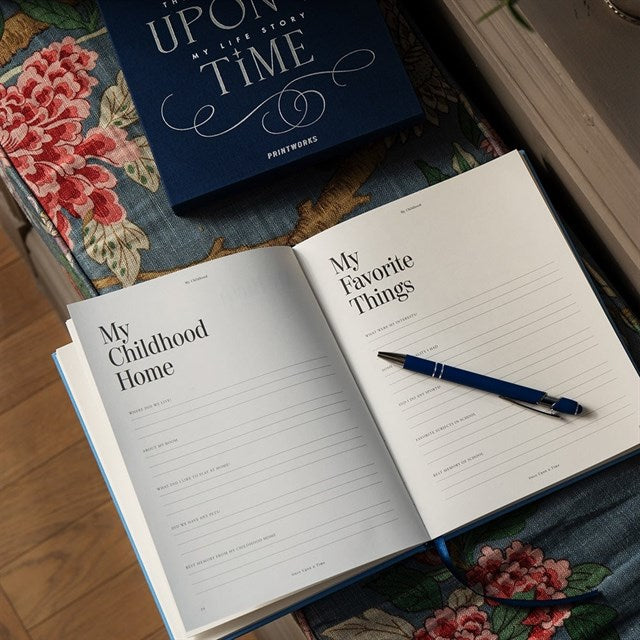 UPON A
MY LIFE STORY
TIME
PRINTWORKS
My Childhood
My
Childhood
Home
WHERE DID WE LIVE?
ABOUT MY ROOM
WHAT DID I LIKE TO PLAY AT HOME?
DID WE HAVE ANY PETS?
BEST MEMORY FROM MY CHILDHOOD HOME
Once Upon a Time
My Childhood
My
Favorite
Things
WHAT WERE MY INTERESTS?
DID I PLAY ANY SPORTS?
FAVORITE SUBJECTS IN SCHOOL
BEST MEMORY OF SCHOOL
Once Upon a Time